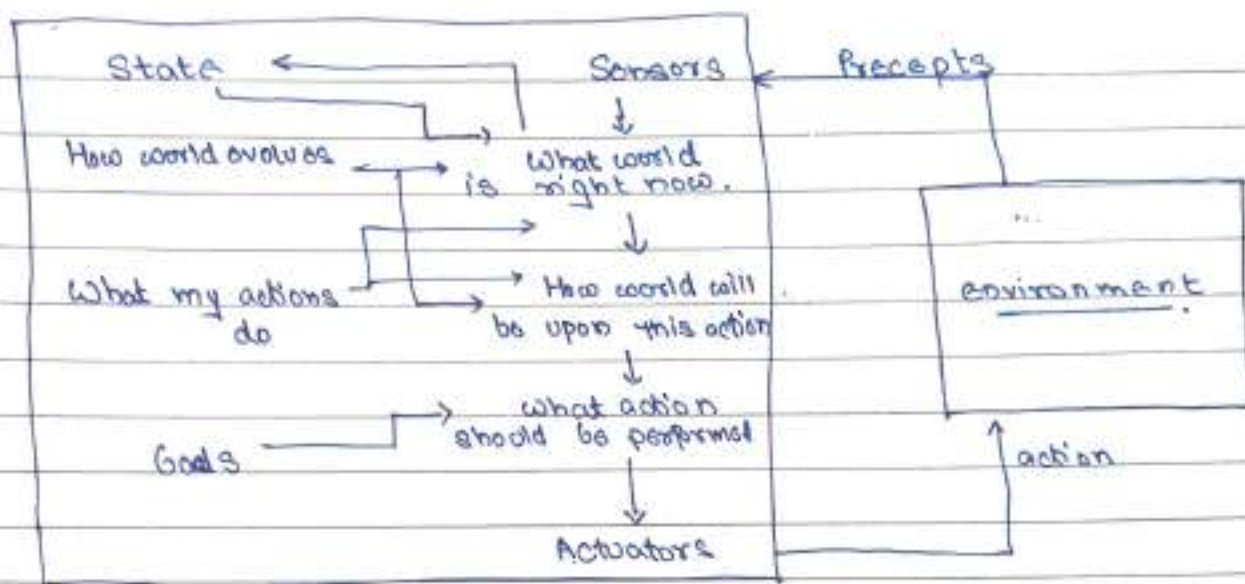 State
Sensors
Precepts
How world evolves
What world
is right now.
What my actions
do
How world will
be upon this action
environment.
what action
should be performed
Goals
action
Actuators